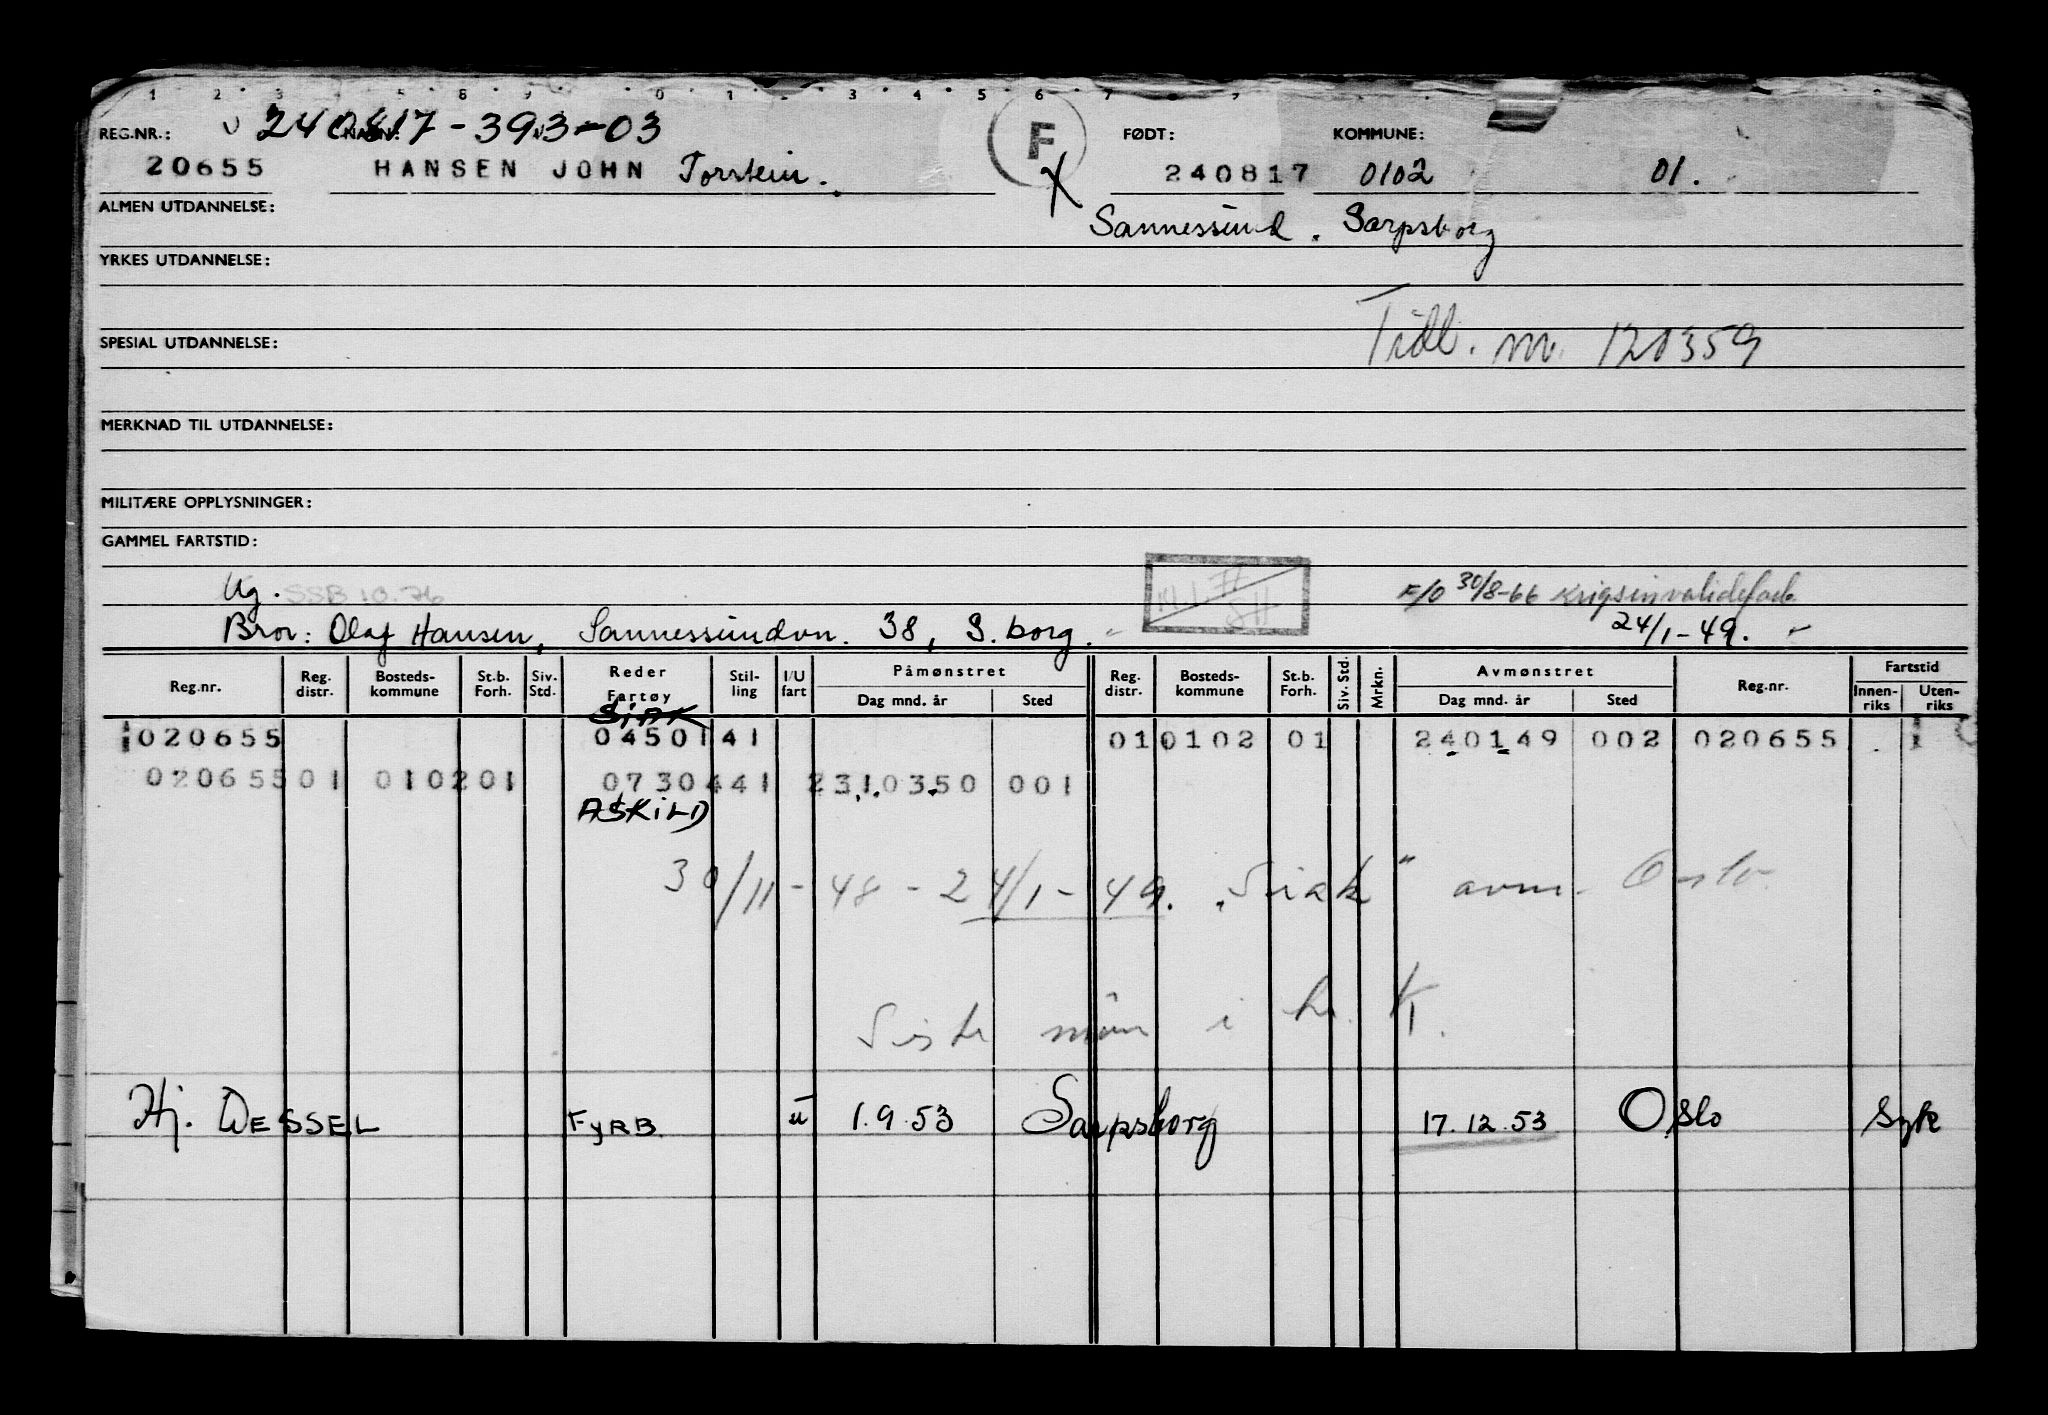 1 2 3 4 5 8 9 0 1 2 3 4 5 6 7 8 9
REG.NR.: 240817-393-03 NAVN: F FØDT: KOMMUNE:
20655 HANSEN JOHN Torstein. X 240817 0102 01.
ALMEN UTDANNELSE: Sannessund. Sarpsborg
YRKES UTDANNELSE:
SPESIAL UTDANNELSE: Tidl. nr. 120359
MERKNAD TIL UTDANNELSE:
MILITÆRE OPPLYSNINGER:
GAMMEL FARTSTID:
Ug. SSB 10.76 F/O 30/8-66 Krigsinvalidesak
Bror: Olaf Hansen, Sannessundvn. 38, S.borg. 24/1-49.
Reg.nr. Reg. distr. Bosteds-kommune St.b. Forh. Siv. Std. Reder Fartøy Stil-ling I/U fart Påmønstret Dag mnd. år Sted Reg. distr. Bosteds-kommune St.b. Forh. Siv. Std. Mrkn. Avmønstret Dag mnd. år Sted Reg.nr. Fartstid Innen-riks Uten-riks
SiAK
1020655 0450141 010102 01 240149 002 020655
02065501 010201 0730441 2310350 001
ASKiLD
30/11-48-24/1-49. "Siak" avm. Oslo
Siste møn i h. K.
Hj. WESSEL FYRB. u 1.9.53 Sarpsborg 17.12.53 Oslo Syk